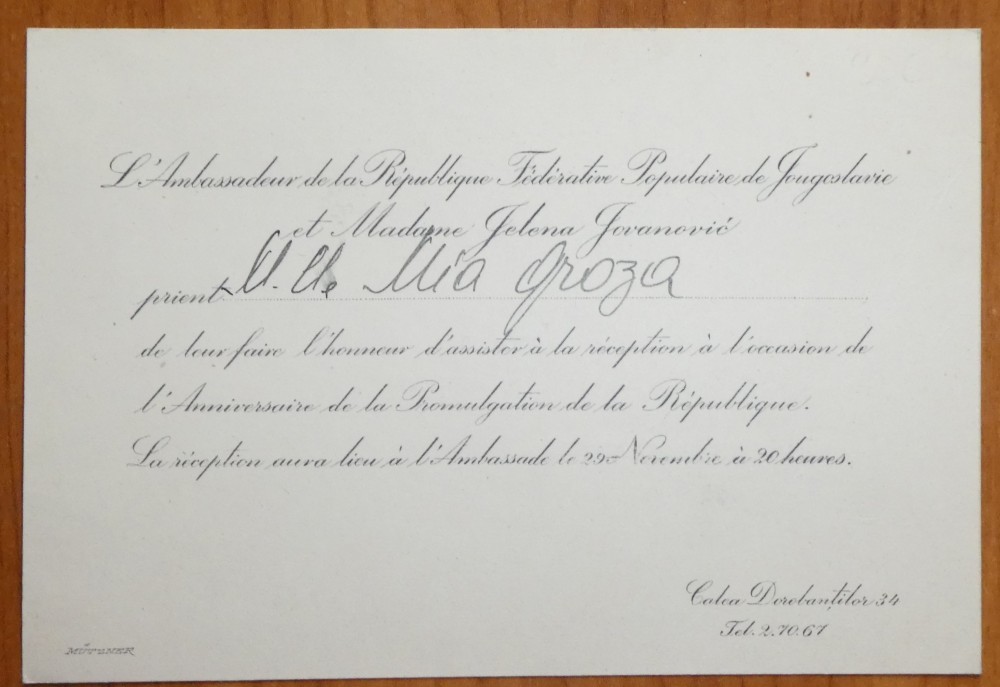 L'Ambassadeur de la République Fédérative Populaire de Jougoslavie
et Madame Jelena Jovanović
prient M. lle Mia Groza
de leur faire l'honneur d'assister à la réception à l'occasion de
l'Anniversaire de la Promulgation de la République.
La réception aura lieu à l'Ambassade le 29 Novembre à 20 heures.
Calea Dorobanților 34
Tel. 2.70.67